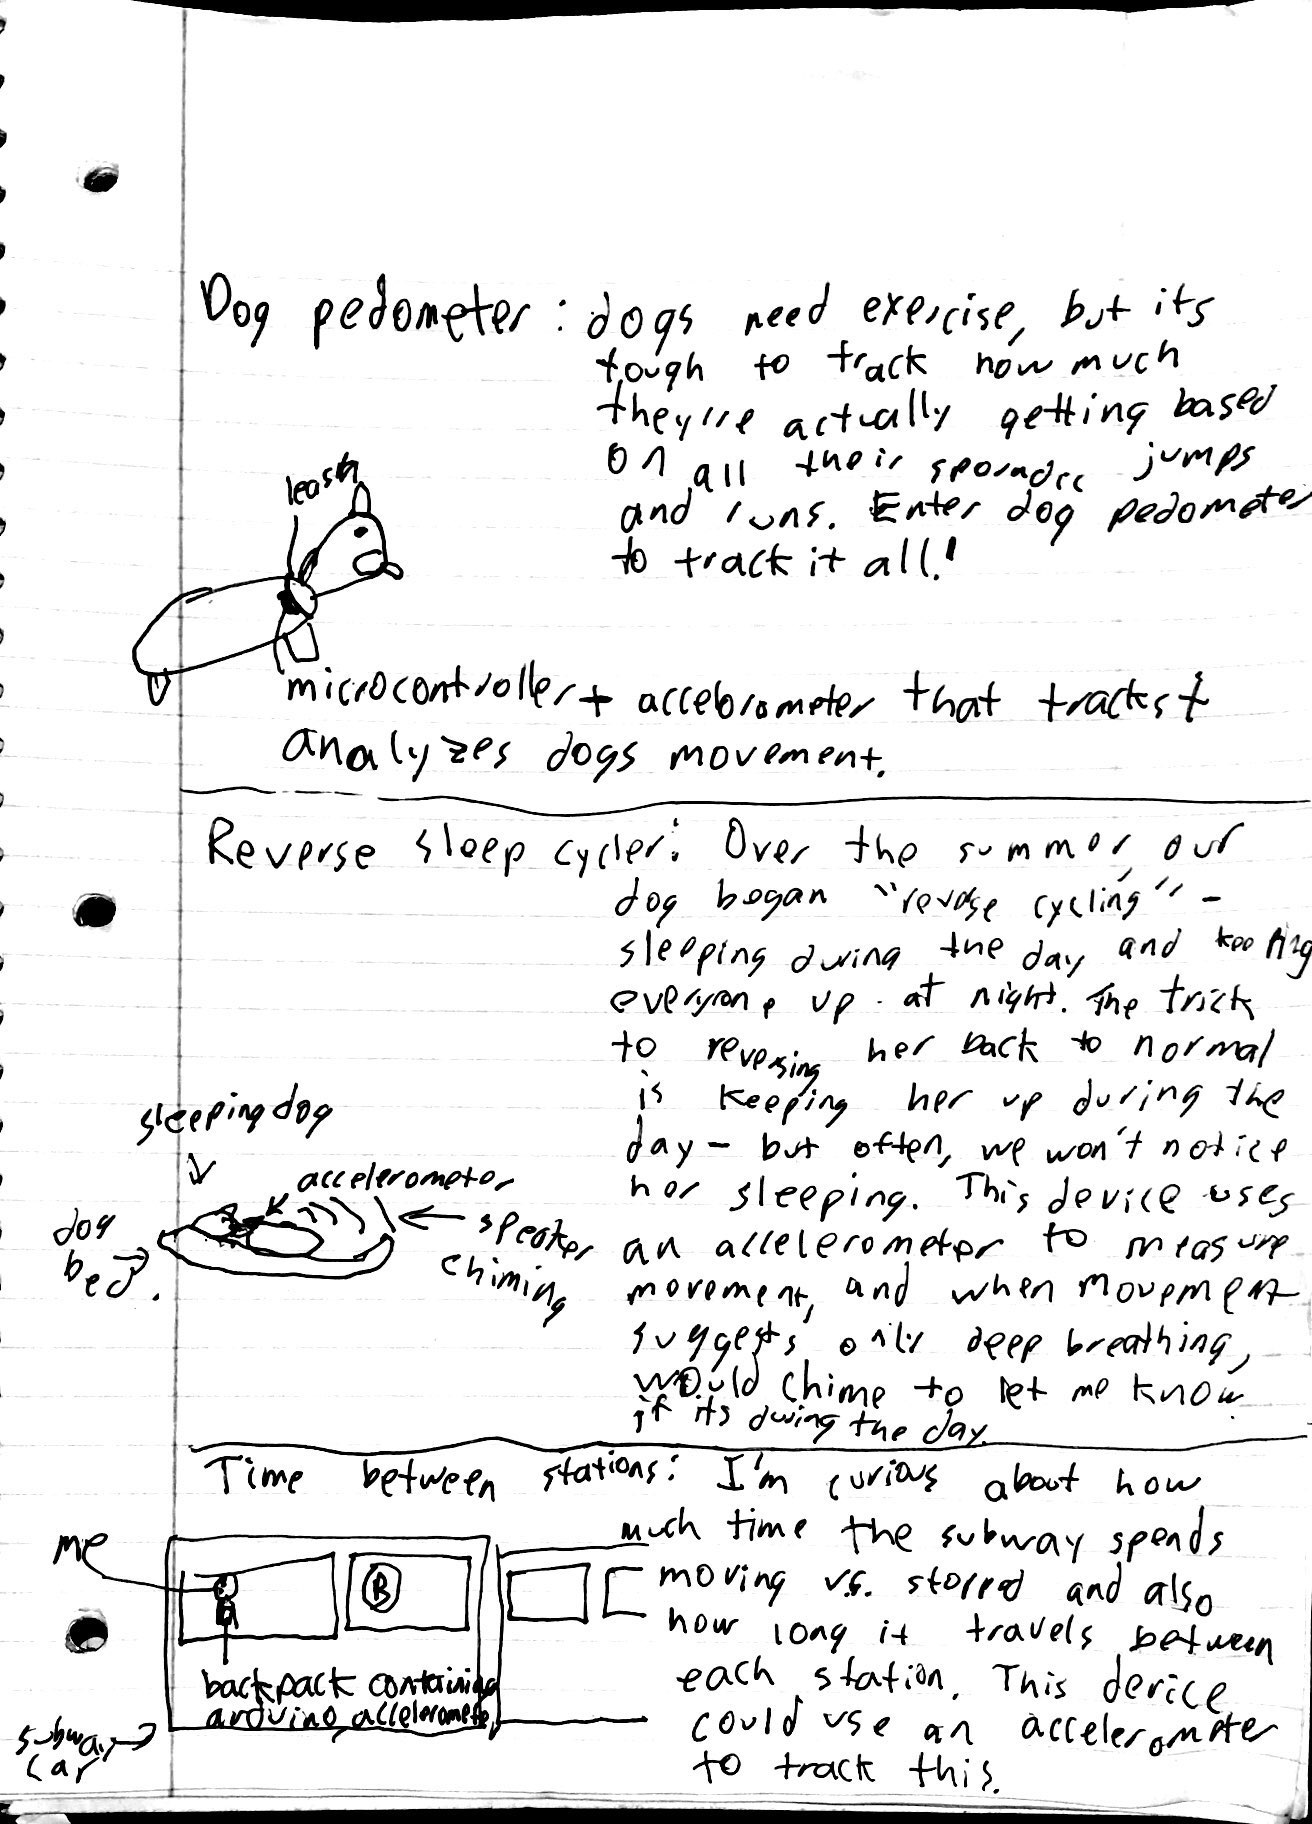 Dog pedometer: dogs need exercise, but its
tough to track how much
they're actually getting based
on all their sporadic jumps
and runs. Enter dog pedometer
to track it all!
leash
microcontroller + accelerometer that tracks +
analyzes dogs movement.
Reverse sleep cycler: Over the summer, our
dog began "reverse cycling" -
sleeping during the day and keeping
everyone up at night. The trick
to reversing her back to normal
is keeping her up during the
day - but often, we won't notice
her sleeping. This device uses
an accelerometer to measure
movement, and when movement
suggests only deep breathing,
would chime to let me know
if its during the day.
sleeping dog
accelerometer
dog
bed.
speaker
chiming
Time between stations: I'm curious about how
much time the subway spends
moving v.s. stopped and also
how long it travels between
each station. This device
could use an accelerometer
to track this.
me
B
backpack containing
arduino, accelerometer
subway
car